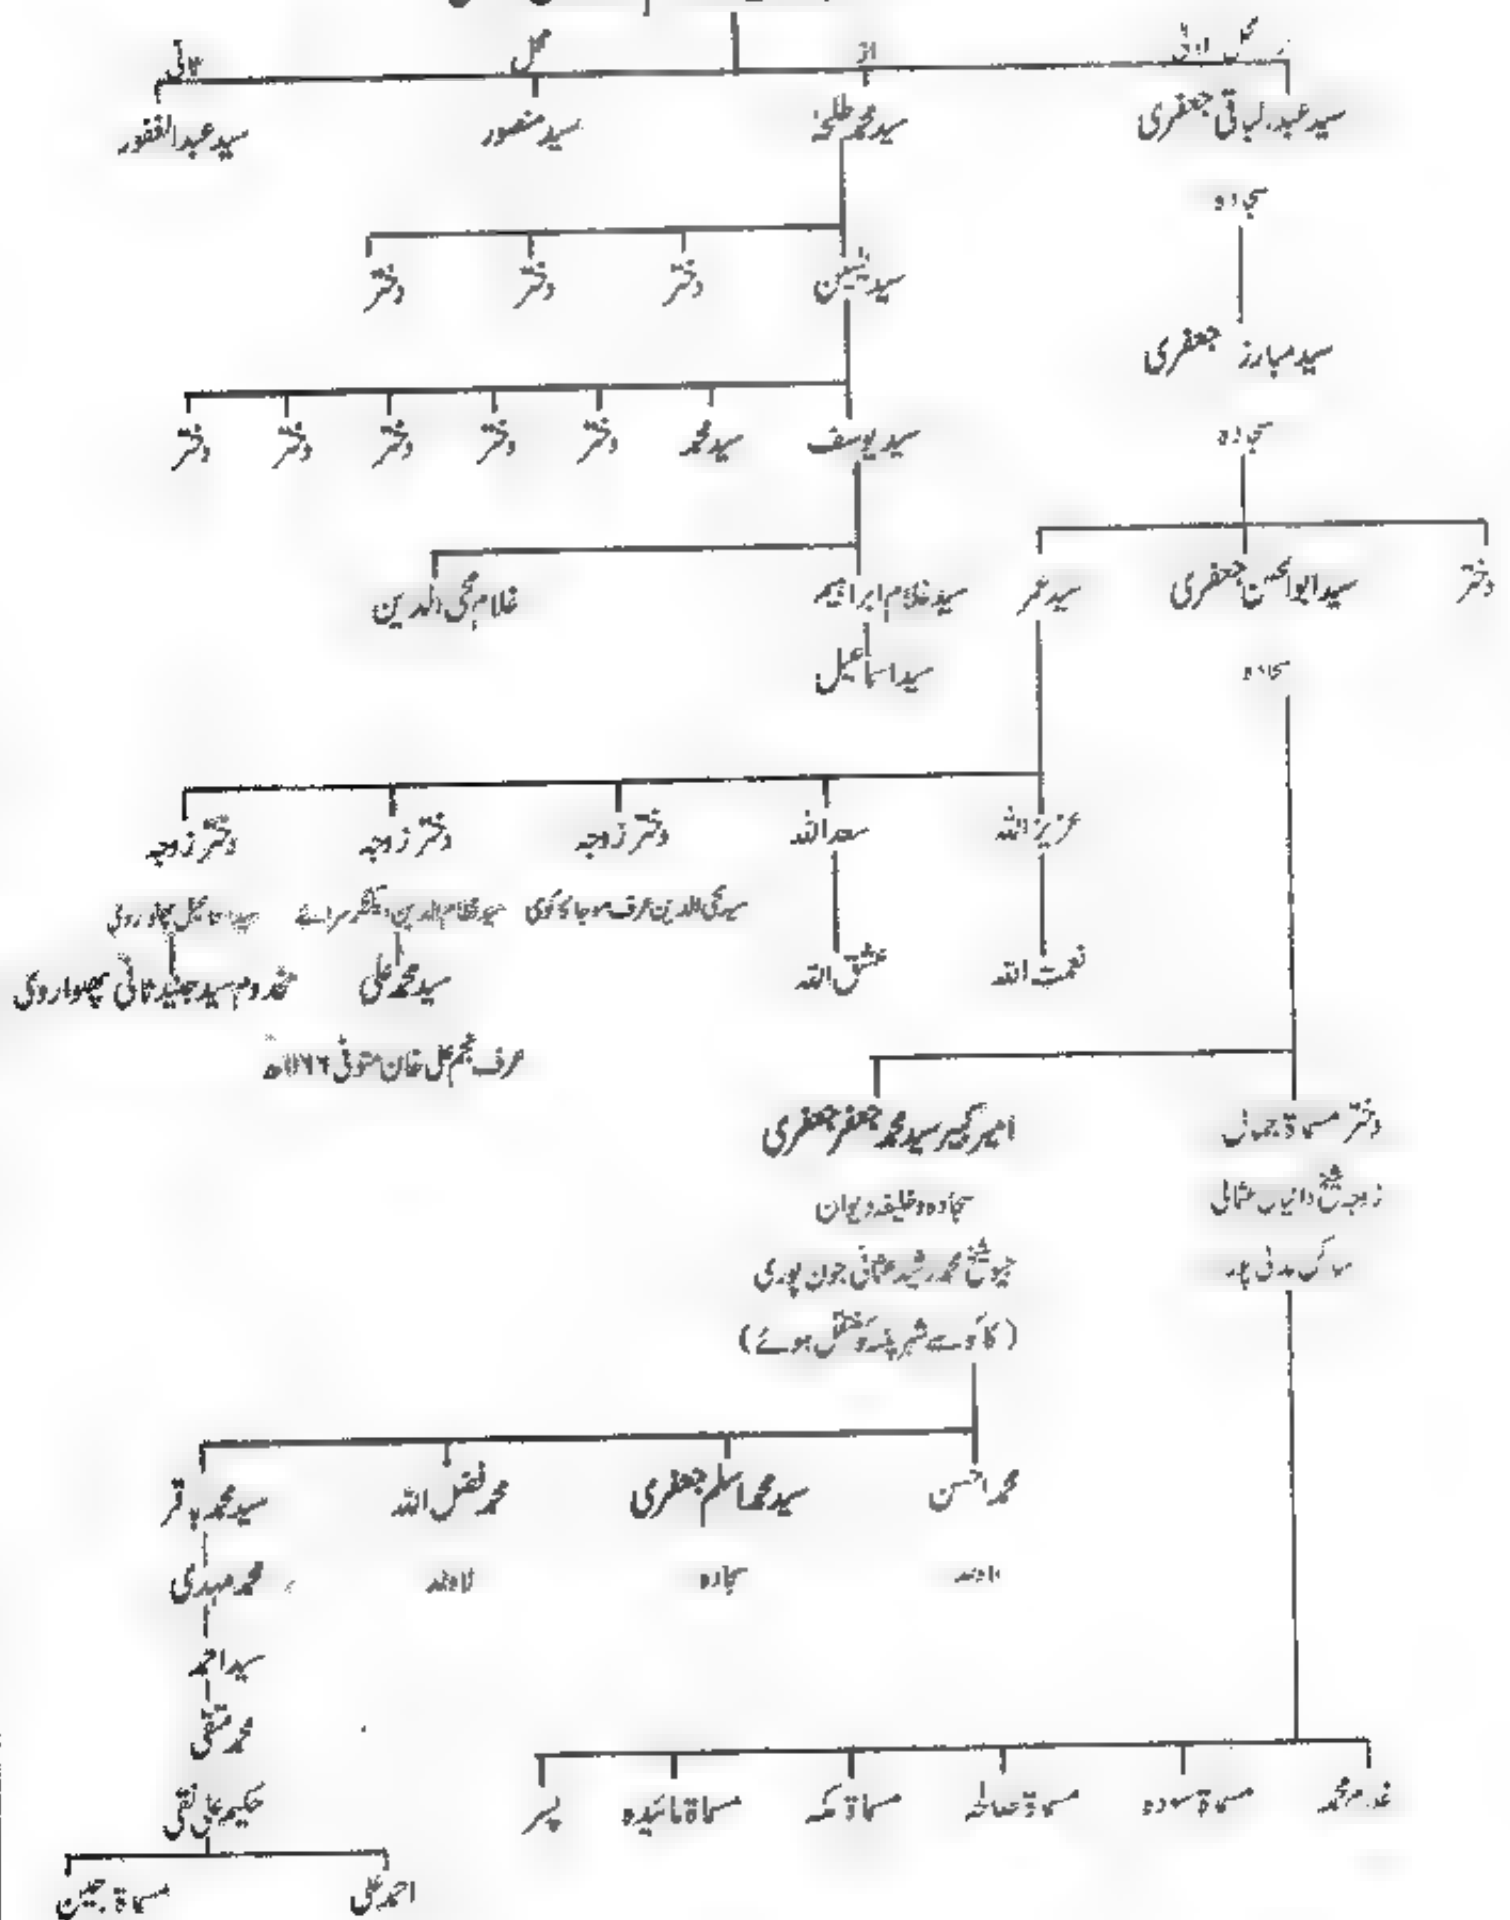 محل اولیٰ
از
محل
ثانی
سید عبدالباقی جعفری
سید محمد طلحہٰ
سید منصور
سید عبدالغفور
سجادہ
سید یٰسین
دختر
دختر
دختر
سید مبارز جعفری
سجادہ
سید یوسف
سید محمد
دختر
دختر
دختر
دختر
دختر
دختر
سید ابوالحسن جعفری
سید عمر
سید غلام ابراہیم
غلام محی الدین
سجادہ
سید اسماعیل
عزیز اللہ
سعد اللہ
دختر زوجہ
دختر زوجہ
دختر زوجہ
سید محی الدین عرف موجا کاکوی
سید نظام الدین سراے
نعمت اللہ
عشق اللہ
سید محمد علی
مخدوم سید جنید ثانی پھلواروی
عرف نجم علی خان متوفی ۱۱۶۶ھ
دختر مسماۃ جمال
امیر کبیر سید محمد جعفر جعفری
زوجہ شیخ دانیال عثمانی
سجادہ و خلیفہ دیوان
ساکن مدنی پور
جیو شیخ محمد رشید عثمانی جون پوری
(کاکو سے شہر پٹنہ کو منتقل ہوئے)
محمد احسن
سید محمد اسلم جعفری
محمد فضل اللہ
سید محمد باقر
لاولد
سجادہ
لاولد
محمد مہدی
سید احمد
محمد متقی
حکیم علی نقی
غلام محمد
مسماۃ سودہ
مسماۃ صالحہ
مسماۃ مکہ
مسماۃ مائیدہ
پسر
احمد علی
مسماۃ جبین